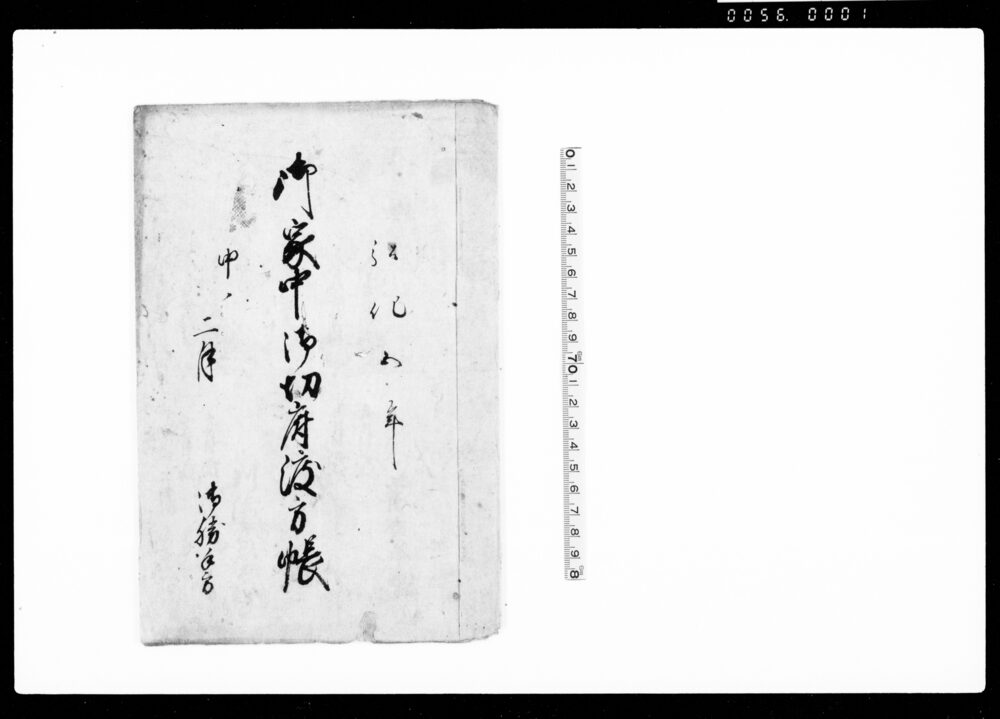 0056. 0001
弘化五年
御家中御切府渡方帳
申ノ二月
御勝手方
0 1 2 3 4 5 6 7 8 9 10 1 2 3 4 5 6 7 8 9